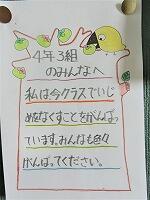 4年3組
のみんなへ
私は今クラスでいじ
めをなくすことをがんばっ
ています。みんなも色々
がんばってください。